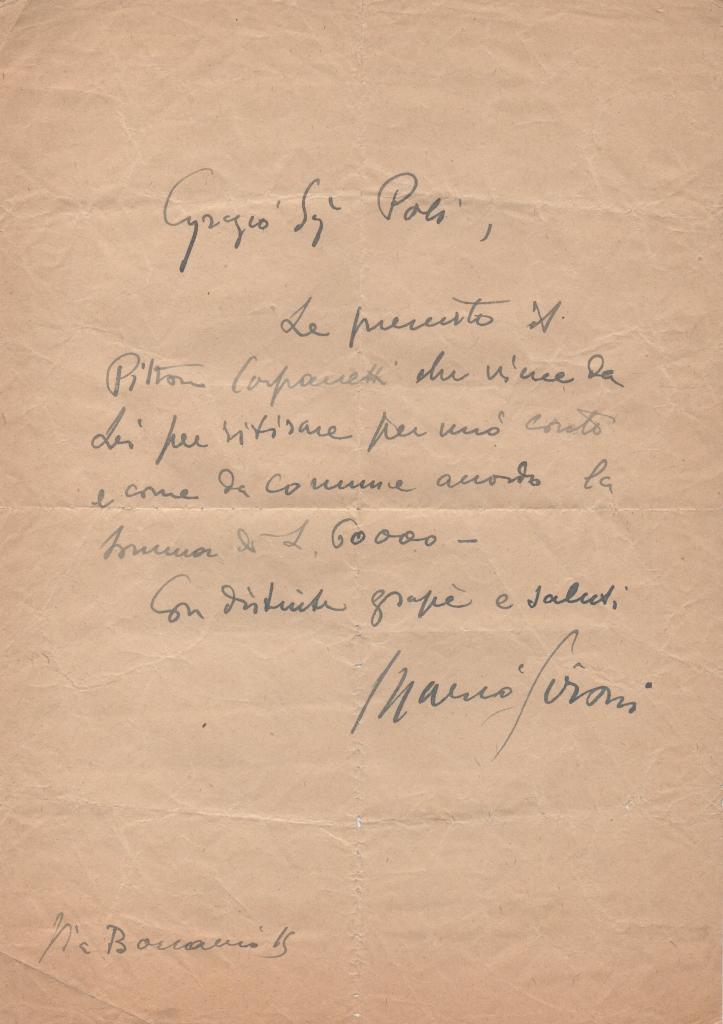 Egregio Sig Poli,
Le presento il
Pittore Carpanetti che viene da
Lei per ritirare per mio conto
e come da comune accordo la
somma di L. 60000 –
Con distinte grazie e saluti
Mario Sironi
Via 15